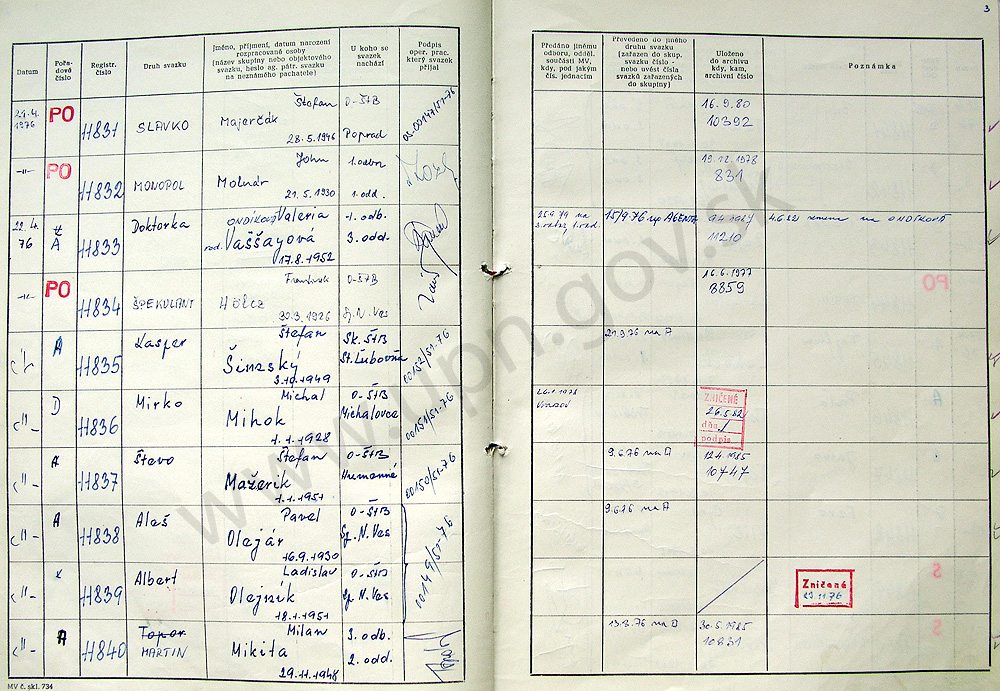 3
Datum
Pořa-
dové
číslo
Registr.
číslo
Druh svazku
Jméno, příjmení, datum narození
rozpracované osoby
(název skupiny nebo objektového
svazku, heslo ag. pátr. svazku
na neznámého pachatele)
U koho se
svazek
nachází
Podpis
oper. prac.
který svazek
přijal
Předáno jinému
odboru, odděl.
součásti MV,
kdy, pod jakým
čís. jednacím
Převedeno do jiného
druhu svazku
(zařazen do skup.
svazku číslo -
nebo uvést čísla
svazků zařazených
do skupiny)
Uloženo
do archivu
kdy, kam,
archivní číslo
Poznámka
21.4.
1976
PO
11831
SLAVKO
Štefan
Majerčák
28.5.1946
O-ŠtB
Poprad
OS-00147/51-76
16.9.80
10392
-"-
PO
11832
MONOPOL
John
Molnár
21.5.1930
1.odbor
1.odd.
19.12.1978
831
22.4.
76
A
11833
Doktorka
ONDÍKOVÁ Valeria
rod. Vaššayová
17.8.1952
1. odb.
3. odd.
25.9.79 na
15/9.76 np AGENTA
11210
4.6.82 zmena na ONDÍKOVÁ
-"-
PO
11834
ŠPEKULANT
František
Hölcz
30.3.1926
O-ŠTB
Sp. N. Ves
16.6.1977
8859
-"-
A
11835
Kasper
Štefan
Šinaský
3.10.1949
Sk. ŠtB
St. Ľubovňa
00152/51-76
21.9.76 na A
-"-
D
11836
Mirko
Michal
Mihok
1.1.1928
O-ŠtB
Michalovce
00151/51-76
26.1.1978
ZNIČENÉ
26.5.82
dňa
podpis
-"-
A
11837
Števo
Štefan
Mažerik
1.1.1951
O-ŠtB
Humenné
00150/51-76
9.6.76 na D
12.4.1985
10747
-"-
A
11838
Aleš
Pavel
Olejár
16.9.1930
O-ŠtB
Sp. N. Ves
00149/51-76
9.6.76 na A
-"-
11839
Albert
Ladislav
Olejník
18.1.1951
O-ŠtB
Sp. N. Ves
Zničené
23.11.76
-"-
A
11840
Topor
MARTIN
Milan
Mikita
29.11.1948
3. odb.
2. odd.
13.8.76 na D
30.5.1985
10831
MV č. skl. 734
www.upn.gov.sk